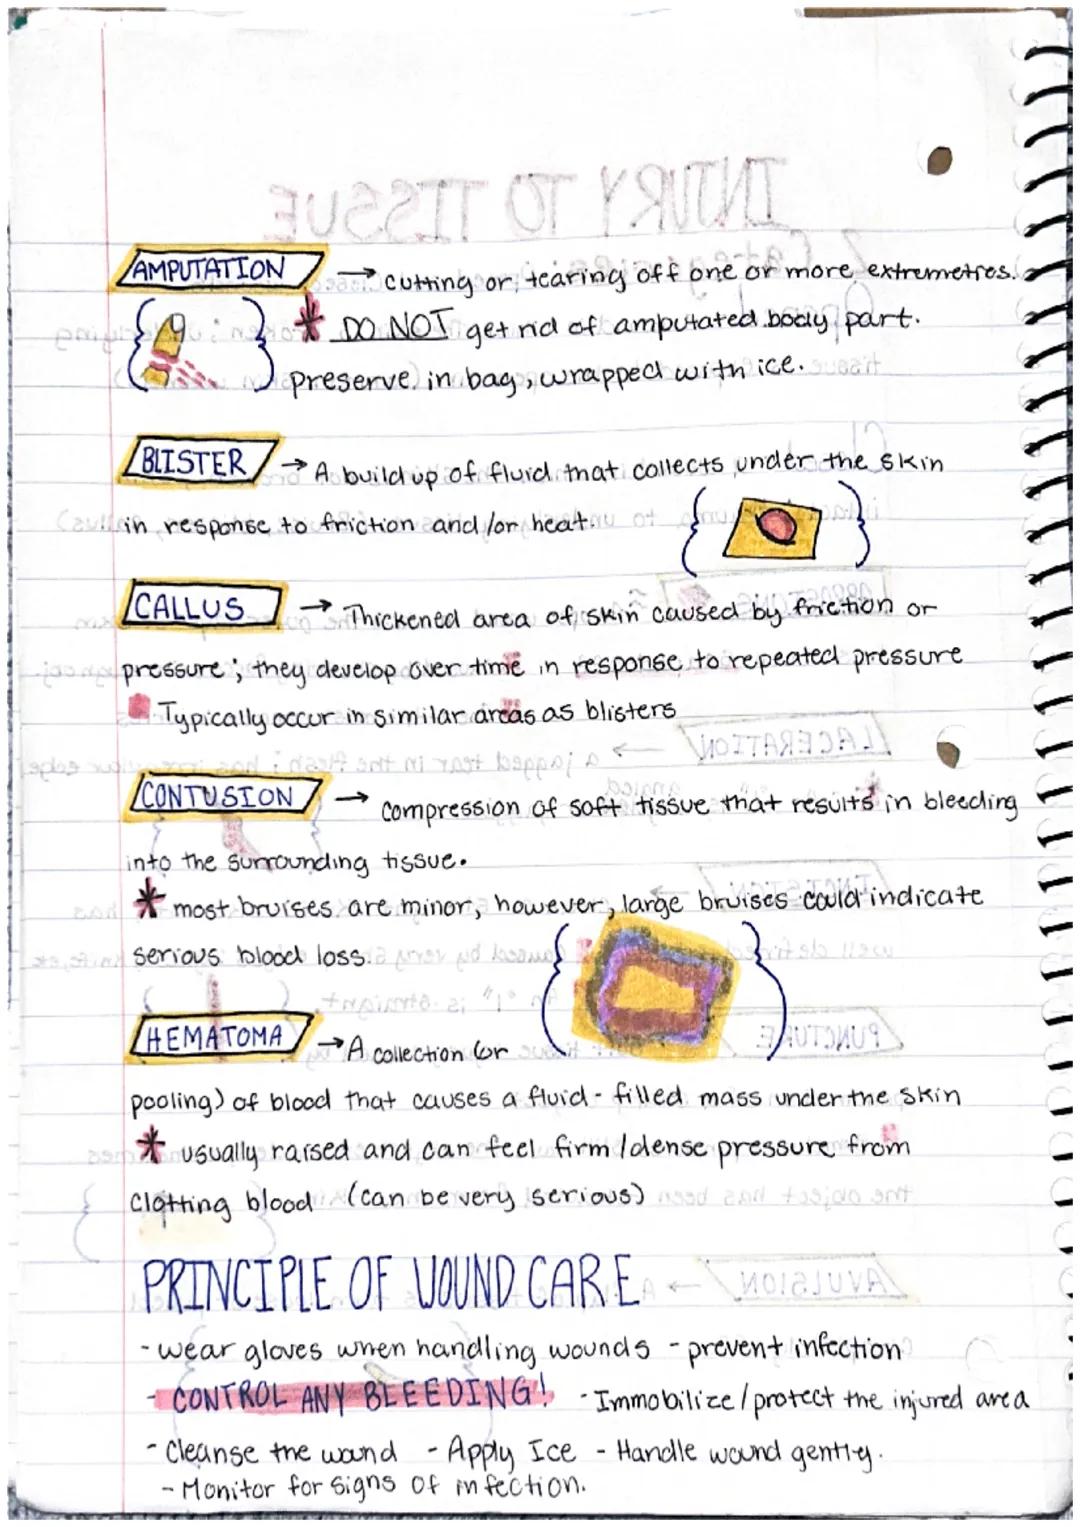 AMPUTATION → cutting or tearing off one or more extremeties.
* DO NOT get rid of amputated body part.
preserve in bag, wrapped with ice.
BLISTER → A build up of fluid that collects under the skin
in response to friction and/or heat.
CALLUS → Thickened area of skin caused by friction or
pressure; they develop over time in response to repeated pressure
Typically occur in similar areas as blisters
CONTUSION → compression of soft tissue that results in bleeding
into the surrounding tissue.
* most bruises are minor, however, large bruises could indicate
serious blood loss.
HEMATOMA → A collection (or
pooling) of blood that causes a fluid-filled mass under the skin
* usually raised and can feel firm/dense pressure from
clotting blood (can be very serious)
PRINCIPLE OF WOUND CARE
- wear gloves when handling wounds - prevent infection
- CONTROL ANY BLEEDING! - Immobilize/protect the injured area
- Cleanse the wound - Apply Ice - Handle wound gently.
- Monitor for signs of infection.